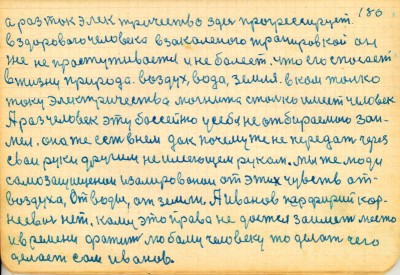 180
а раз ток электричество здесь прогрессирует.
в здорового человека в закаленого транировкой он
же не простуживается и не болеет. что его спасает
в жизни природа. воздух, вода, земля. в ком только
току электричества магнита столько имеет человек
А раз человек эту у себя не отбираемою зан-
мел. она же есть в нем дак почему же не передать через
свои руки другим не имеющем рукам. мы же люди
самозащищеной изалировоной от этих чувств от-
воздуха, от воды, от земли. А иванов парфирий кор-
неевич нет. кому это права не достся займет место
и времени дратит любому человеку то делат чего
делает сам иванов.